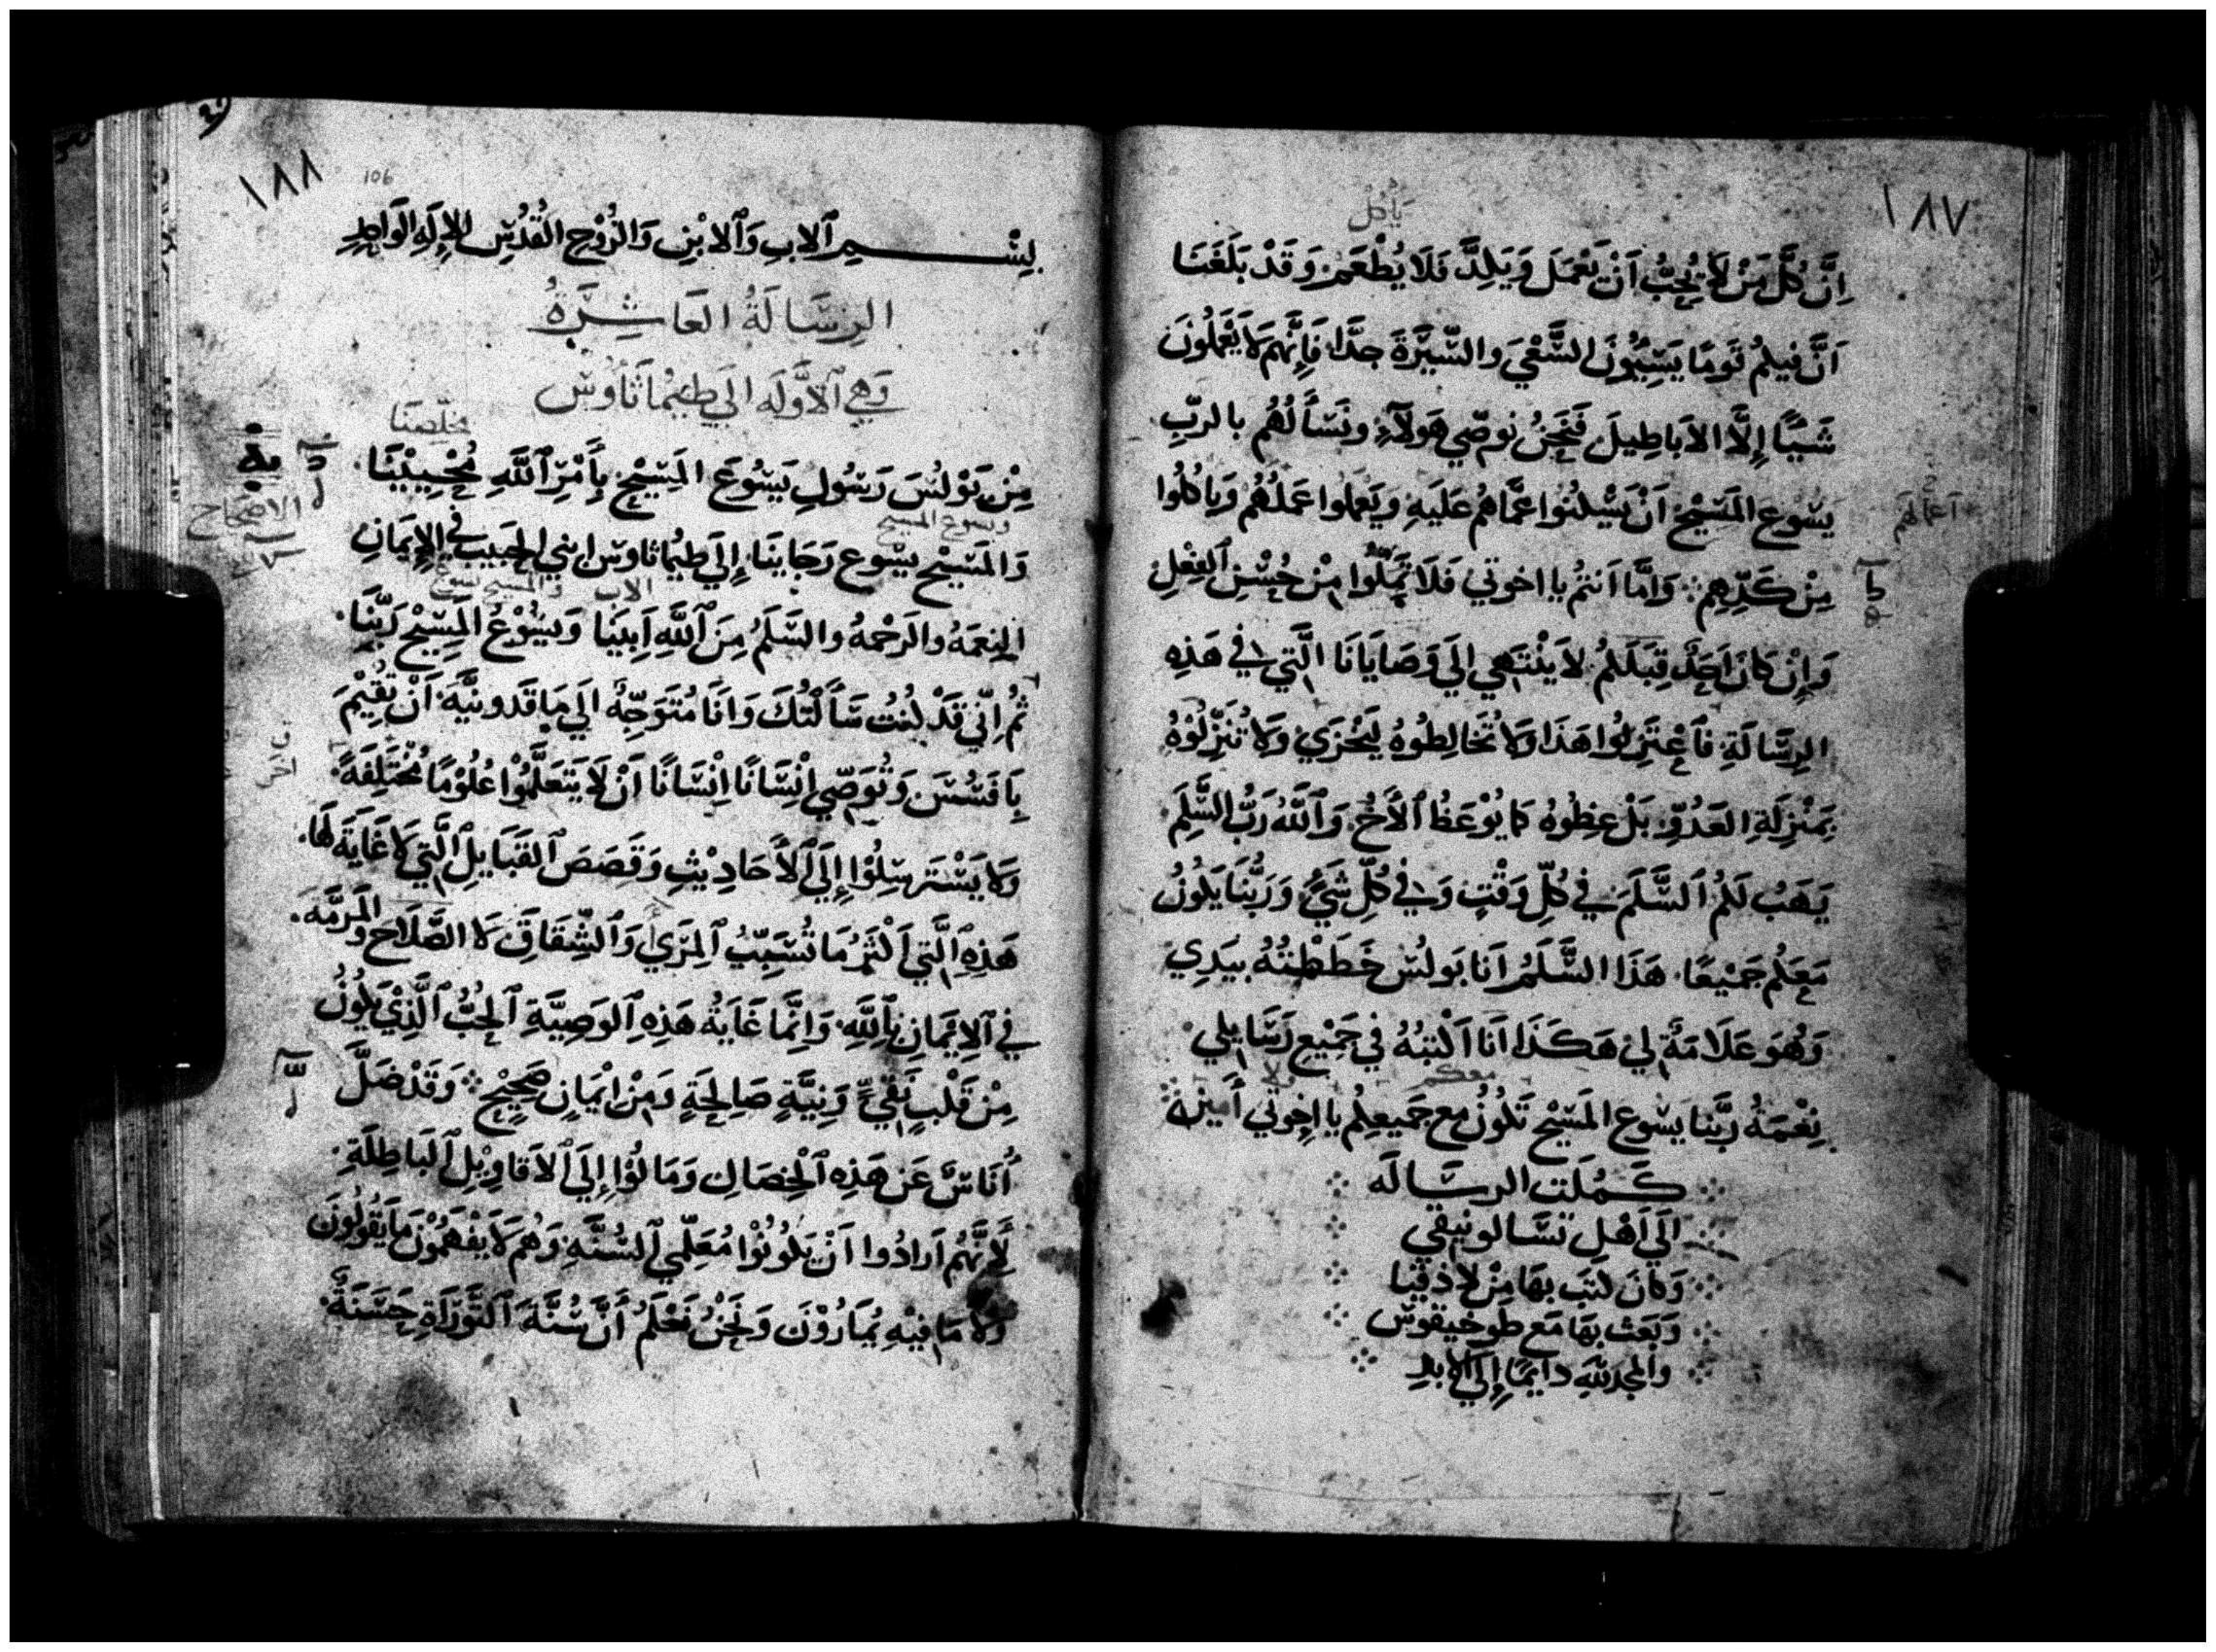 ١٨٧
يَأكُل
اِنَّ كُلَّ مَنْ لَا يُحِبُّ اَنْ يَعْمَلَ وَيَكِدَّ فَلَا يُطْعَمْ وَقَدْ بَلَغَنَا
اَنَّ فيكُم قَومًا يَسِيُونَ السَّعْيَ والسِّيرَةَ جدًّا فَإِنَّهم لَا يَعْمَلُونَ
شَيئًا إِلَّا الاَباطِيلَ فَنَحنُ نوصّي هَولآءِ ونَسَأَلُهُم بالربِّ
يَسُوعَ المَسيْحِ اَنْ يَسْكُنُوا عَمَّاهُم عَلَيهِ وَيَعْمَلوا عَمَلَهُم وَيَاكلُوا
اعمالهم
مِنْ كَدِّهِم وَامَّا اَنتم يا اخوتي فَلَا تَمَلُّوا مِنْ حُسْنِ اَلفِعْلِ
وَإِنْ كَانَ اَحَدٌ قِبَلَكُم لاَ يَنْتَهي الي وَصَايَانَا الَّتي في هَذِه
الرِسَالَةِ فَاعْتَزِلُوا هَذَا وَلَا تُخَالِطُوهُ لِيُخْزَيْ وَلَا تُنَزِّلُوْهُ
بِمَنْزِلَةِ العَدُوِّ بَلْ عِظُوهُ كمَا يُوْعَظُ اْلأَخُ وَاْللَّهُ رَبُّ السَّلَمِ
يَهَبُ لَكُم اْلسَّلَمَ في كُلِّ وَقْتٍ وَفي كُلِّ شَيءٍ وَرَبُّنَا يَكُونُ
مَعَكُم جَمِيْعًا هَذَا السَّلَمُ اَنَا بَولُس خَطَطْتُهُ بيَدِيْ
وَهُوَ عَلَامَةٌ لِيْ هَكَذَا اَنَا اَكْتبُهُ فِي جَمِيْعِ رَسَايلي
معكم
نِعْمَةُ رَبِّنَا يَسُوعَ المَسِيْح تَكُونُ مع جَميعِكُم يا اِخوَتي أَمين
كَمُلَت الرسَالَه
الَي اَهْلِ تسَّالونيقي
وَكانَ كتَب بهَا مِنْ لاذقيا
وَبَعَث بهَا مَع طوخيقوس
والمجد للّهِ دايمًا إِلَي الابدِ
١٨٨
106
بِسْمِ اْلابِ وَاْلابْنِ وَالرُّوْحِ القُدُسِ الإِلَهِ الوَاحِدِ
الرِسَالَةُ العَاشِرَةُ
وَهِيَ اْلاوَّلَه الَي طيمَاثَاوُس
مخلّصنَا
مِنْ بَوْلُسَ رَسُولِ يَسُوعَ المَسِيْحِ بِأَمْرِ اْللَّهِ مُحْيِيْنَا
الاصحاح
ويسوع المسيح
وَالمَسِيْحِ يسُوع رَجَاينَا إِلَي طِيمَاثاوسَ ابني الحَبيب في الإِيمَانِ
الاب والمسيح يسوع
النِعمَةُ والرَحْمهُ والسَّلَمُ مِنَ اْللَّهِ اَبيْنَا وَيسُوْعُ المَسِيْحِ رَبِّنَا
ثُم اِنّي قَدْ كُنتُ سَأَلتُكَ وَانَا مُتَوَجِّهٌ الَي مَاقَدونيَّةَ اَنْ تُقِيْمَ
بِاَفَسُسَ وَتُوَصّي اِنْسَانًا اِنْسَانًا اَنْ لَا يَتَعَلَّمُوْا عُلُوْمًا مُخْتَلِفَةً
وَلَا يَسْتَرسِلُوْا إِلَي اْلأَحَادِيْثِ وَقَصَصَ اْلقَبَايلِ اْلَّتِي لَا غَايَةَ لَهَا
هَذِهِ اْلَّتِي اَكْثَرُ مَا تُسَبِّبُ اْلمِرَيْ وَاْلشِّقَاقَ لَا الصَّلَاح وَالمَرمَّه
فِي اْلاِيْمَانِ بِاْللَّهِ وَاِنَّمَا غَايَةُ هَذِهِ اْلوَصِيَّةِ اْلحُبُّ اْلَّذِيْ يَكُونُ
مِنْ قَلْبٍ نَقِيٍّ وَنِيَّةٍ صَالِحَةٍ وَمِنْ اِيْمَانٍ صَحِيْحٍ وَقَدْ ضَلَّ
أُنَاسٌ عَن هَذِهِ اْلخِصَالِ وَمَالُوْا إِلَي اْلاَقَاوِيْلِ اْلبَاطِلَةِ
لِأَنَّهُم اَرَادُوا اَنْ يَكُونُوْا مُعَلِّمِي اْلسُّنَّةِ وَهُم لَا يَفْهَمُوْنَ مَا يَقُولُونَ
وَلَا مَا فِيْهِ يُمَارُوْنَ وَنَحْنُ نَعْلَمُ أَنَّ سُنَّةَ اْلتَّوْرَاةِ حَسَنَةٌ